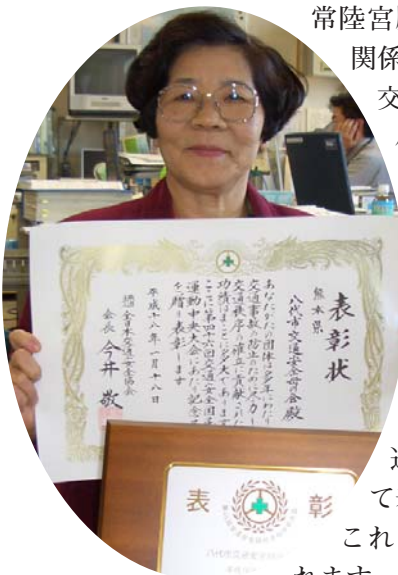 常陸宮
関係
交
表彰状
熊本県
八代市交通安全母の会殿
あなたがたの団体は多年にわたり
交通事故の防止のために尽力し
交通秩序の確立に貢献された
功績はまことに多大であります
ここに第四十六回交通安全国
運動中央大会にあたり記念
を贈り表彰します
平成十八年一月十八日
全日本交通安全協会
会長 今井 敬
表 彰
八代市交通安全
て
これ
れます